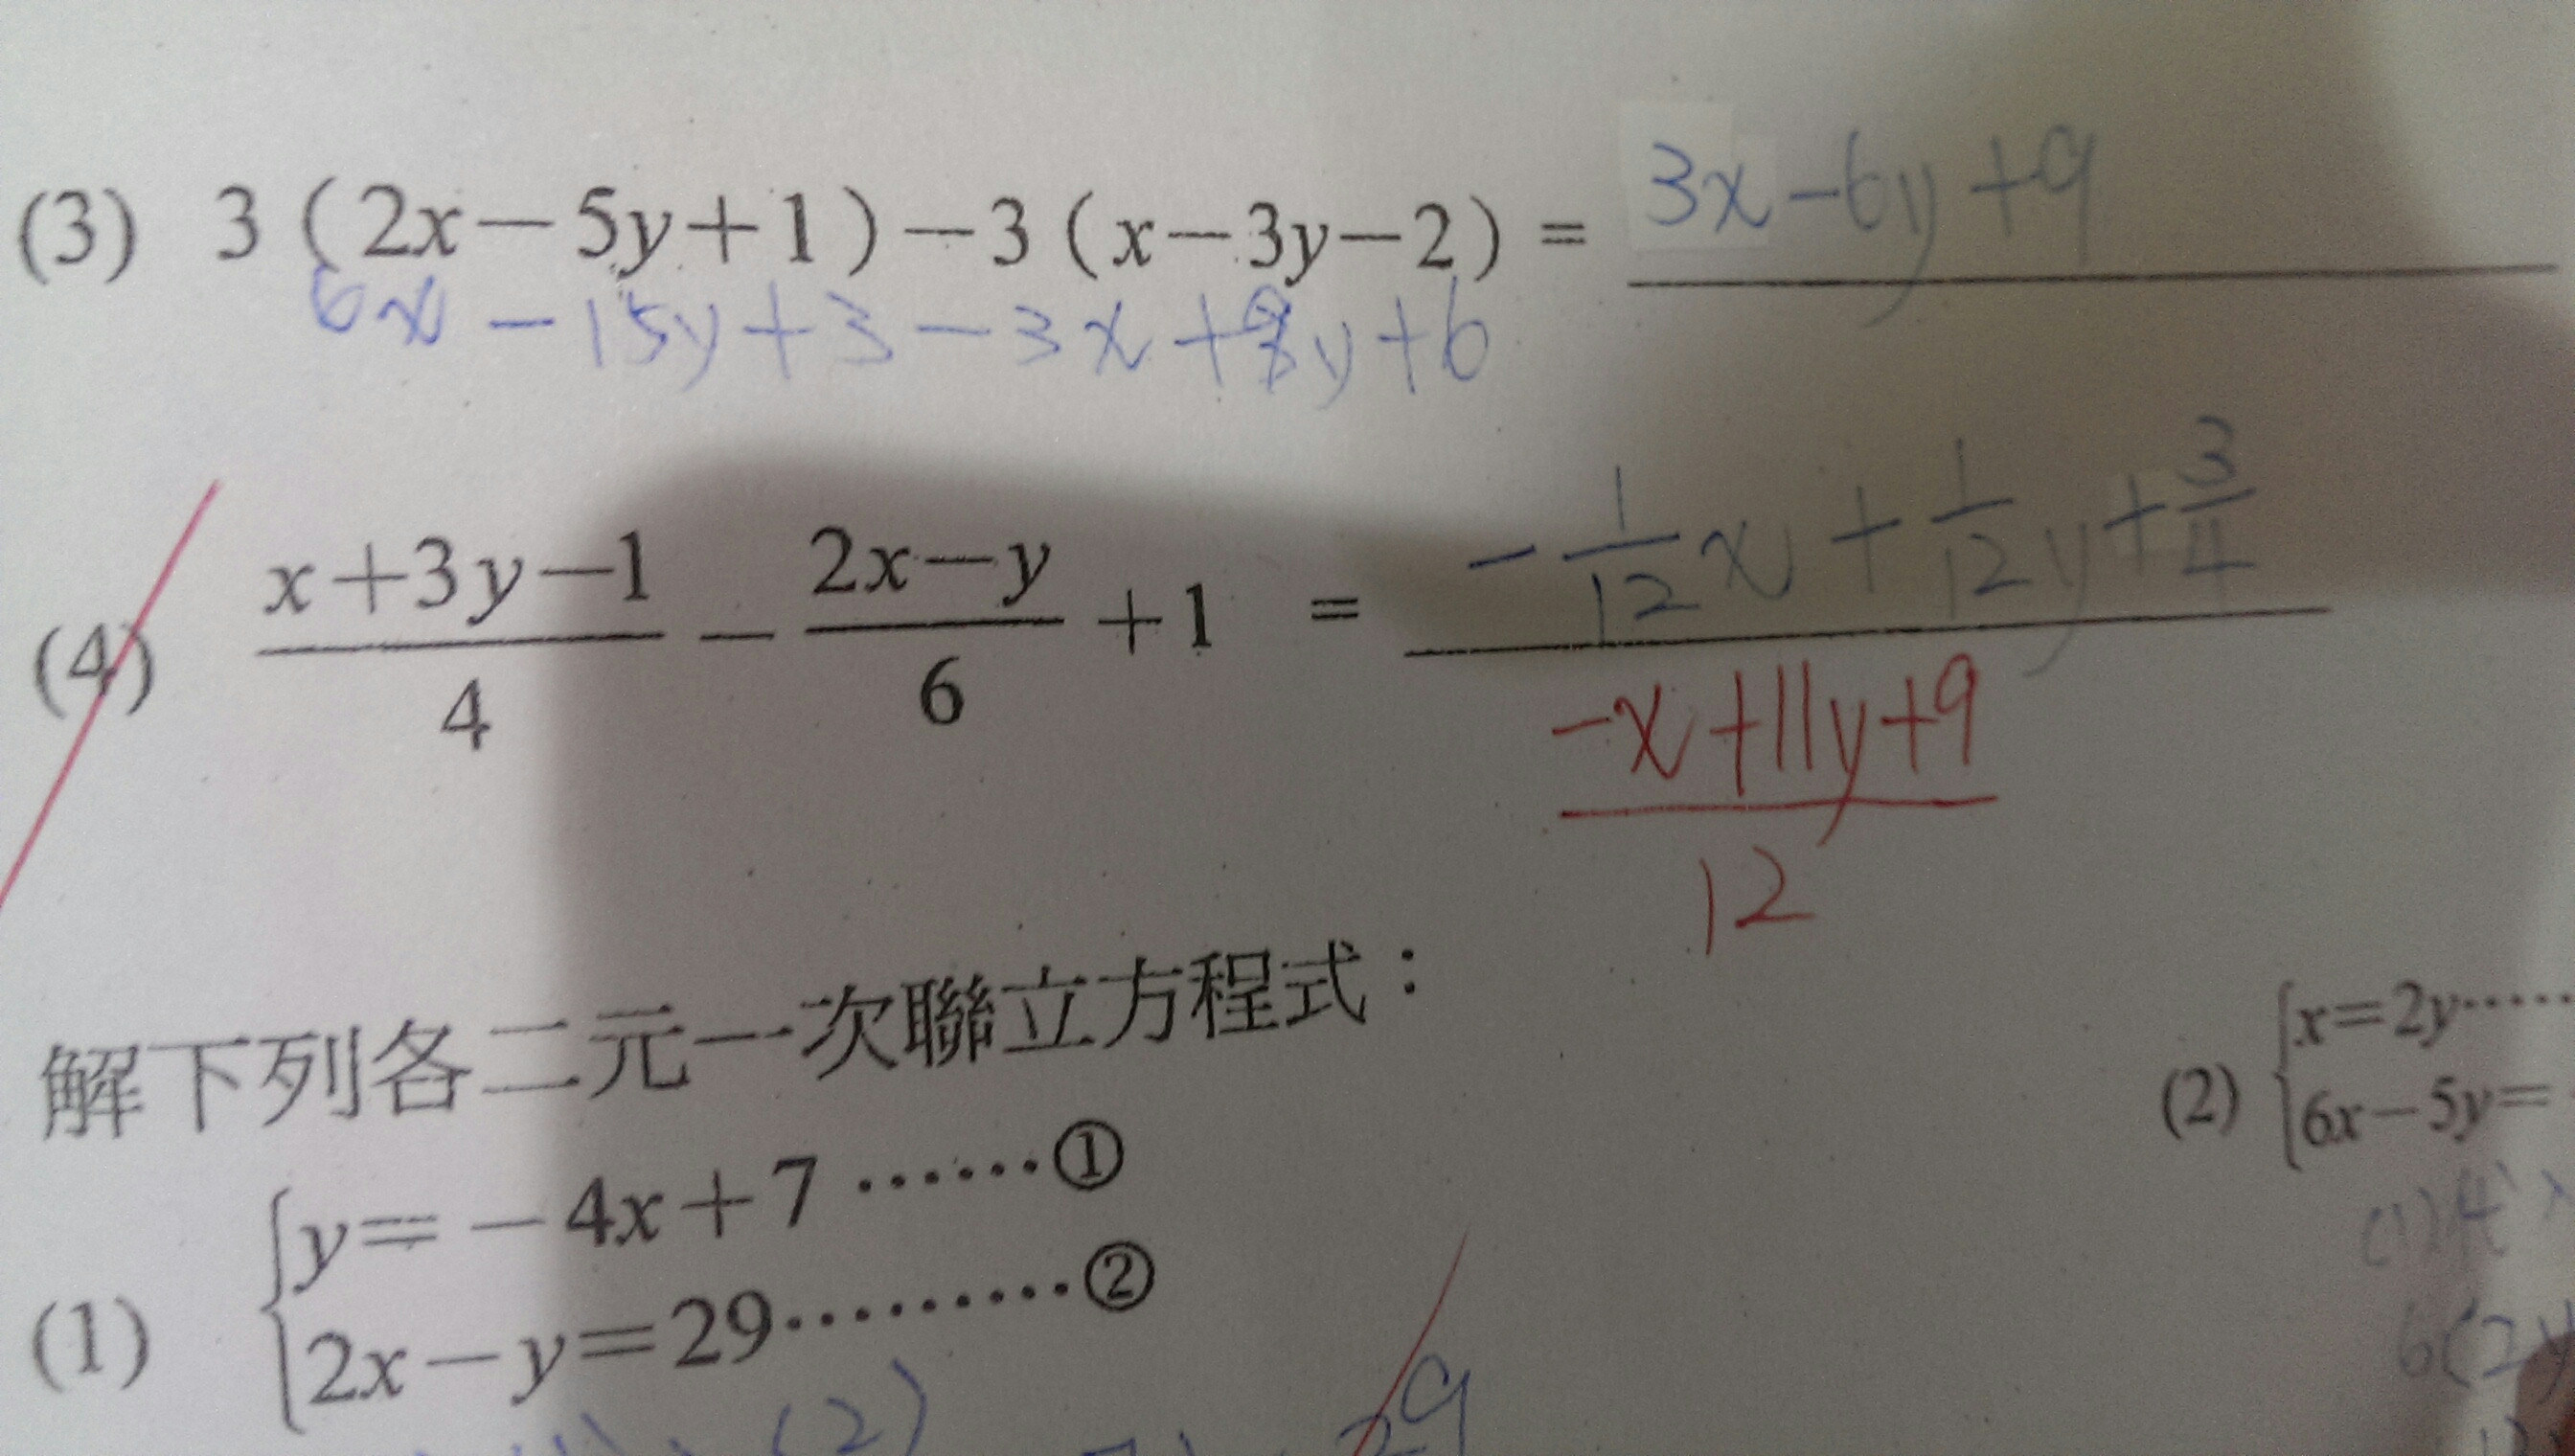 (3) 3(2x-5y+1)-3(x-3y-2)= 3x-6y+9
6x-15y+3-3x+9y+6
(4) \frac{x+3y-1}{4} - \frac{2x-y}{6} +1 = -\frac{1}{12}x+\frac{1}{12}y+\frac{3}{4}
\frac{-x+11y+9}{12}
解下列各二元一次聯立方程式：
(1) { y=-4x+7 ……①
2x-y=29………②
(2)
29
(2) { x=2y……
6x-5y=
(1)代
6(2y